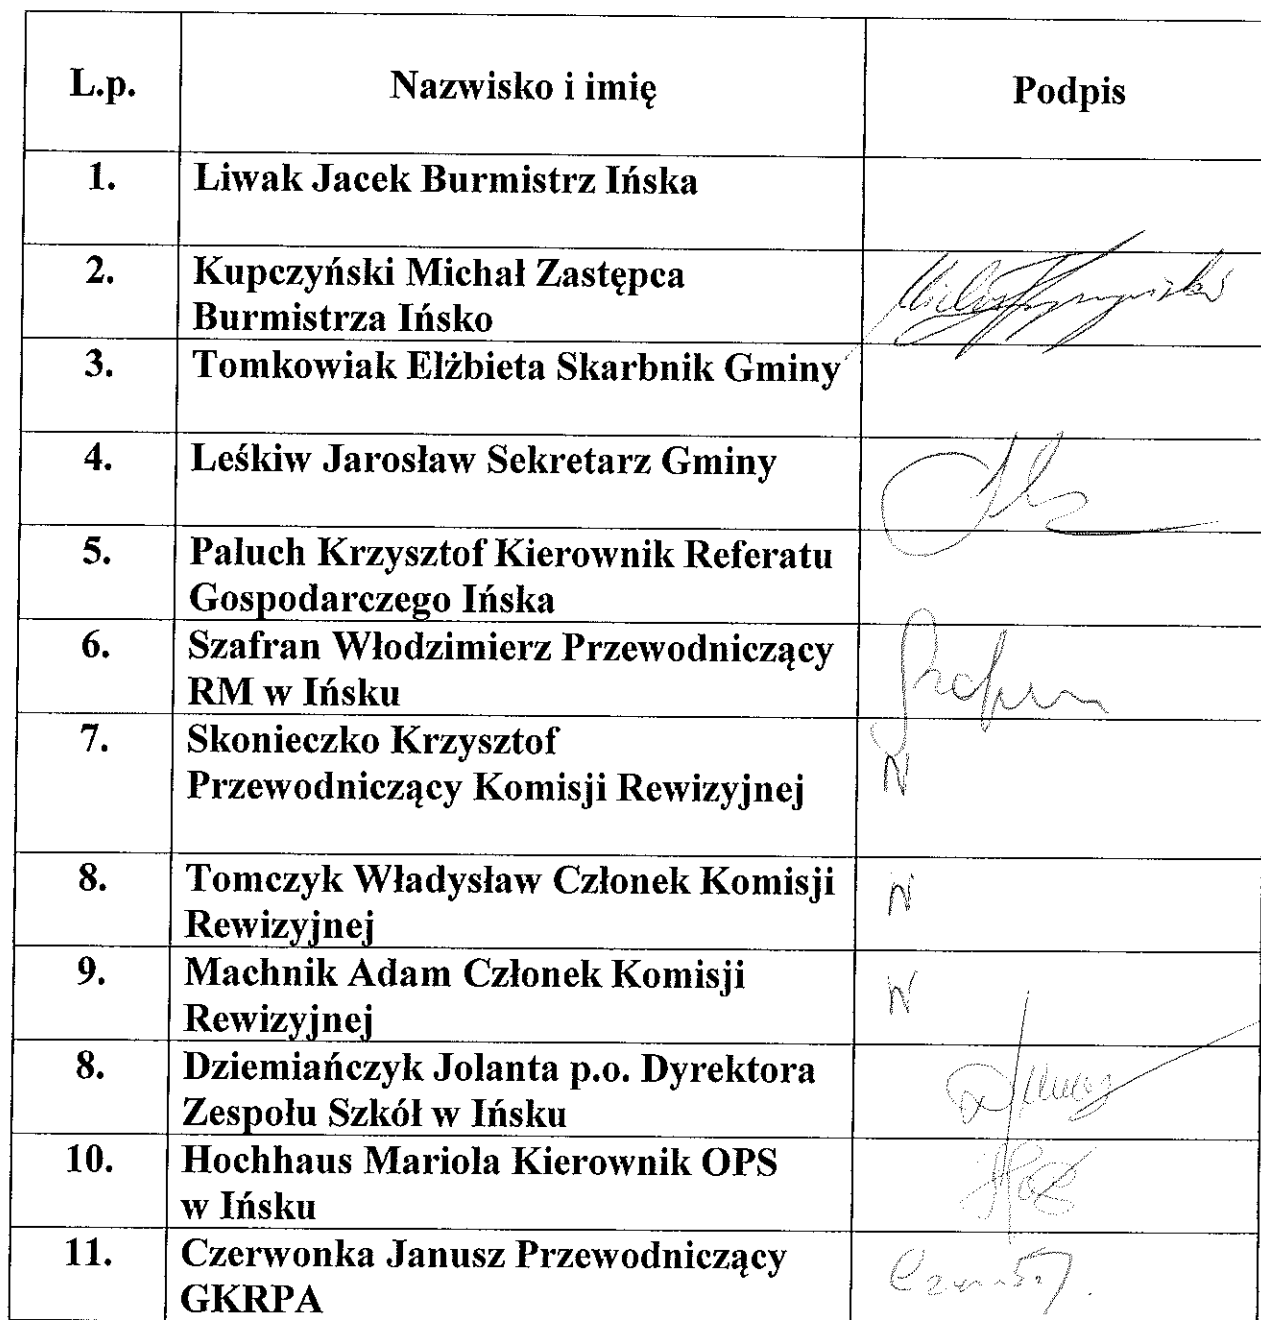 L.p. Nazwisko i imię Podpis
1. Liwak Jacek Burmistrz Ińska
2. Kupczyński Michał Zastępca
Burmistrza Ińsko
3. Tomkowiak Elżbieta Skarbnik Gminy
4. Leśkiw Jarosław Sekretarz Gminy
5. Paluch Krzysztof Kierownik Referatu
Gospodarczego Ińska
6. Szafran Włodzimierz Przewodniczący
RM w Ińsku
7. Skonieczko Krzysztof
Przewodniczący Komisji Rewizyjnej N
8. Tomczyk Władysław Członek Komisji N
Rewizyjnej
9. Machnik Adam Członek Komisji N
Rewizyjnej
8. Dziemiańczyk Jolanta p.o. Dyrektora
Zespołu Szkół w Ińsku
10. Hochhaus Mariola Kierownik OPS
w Ińsku
11. Czerwonka Janusz Przewodniczący
GKRPA